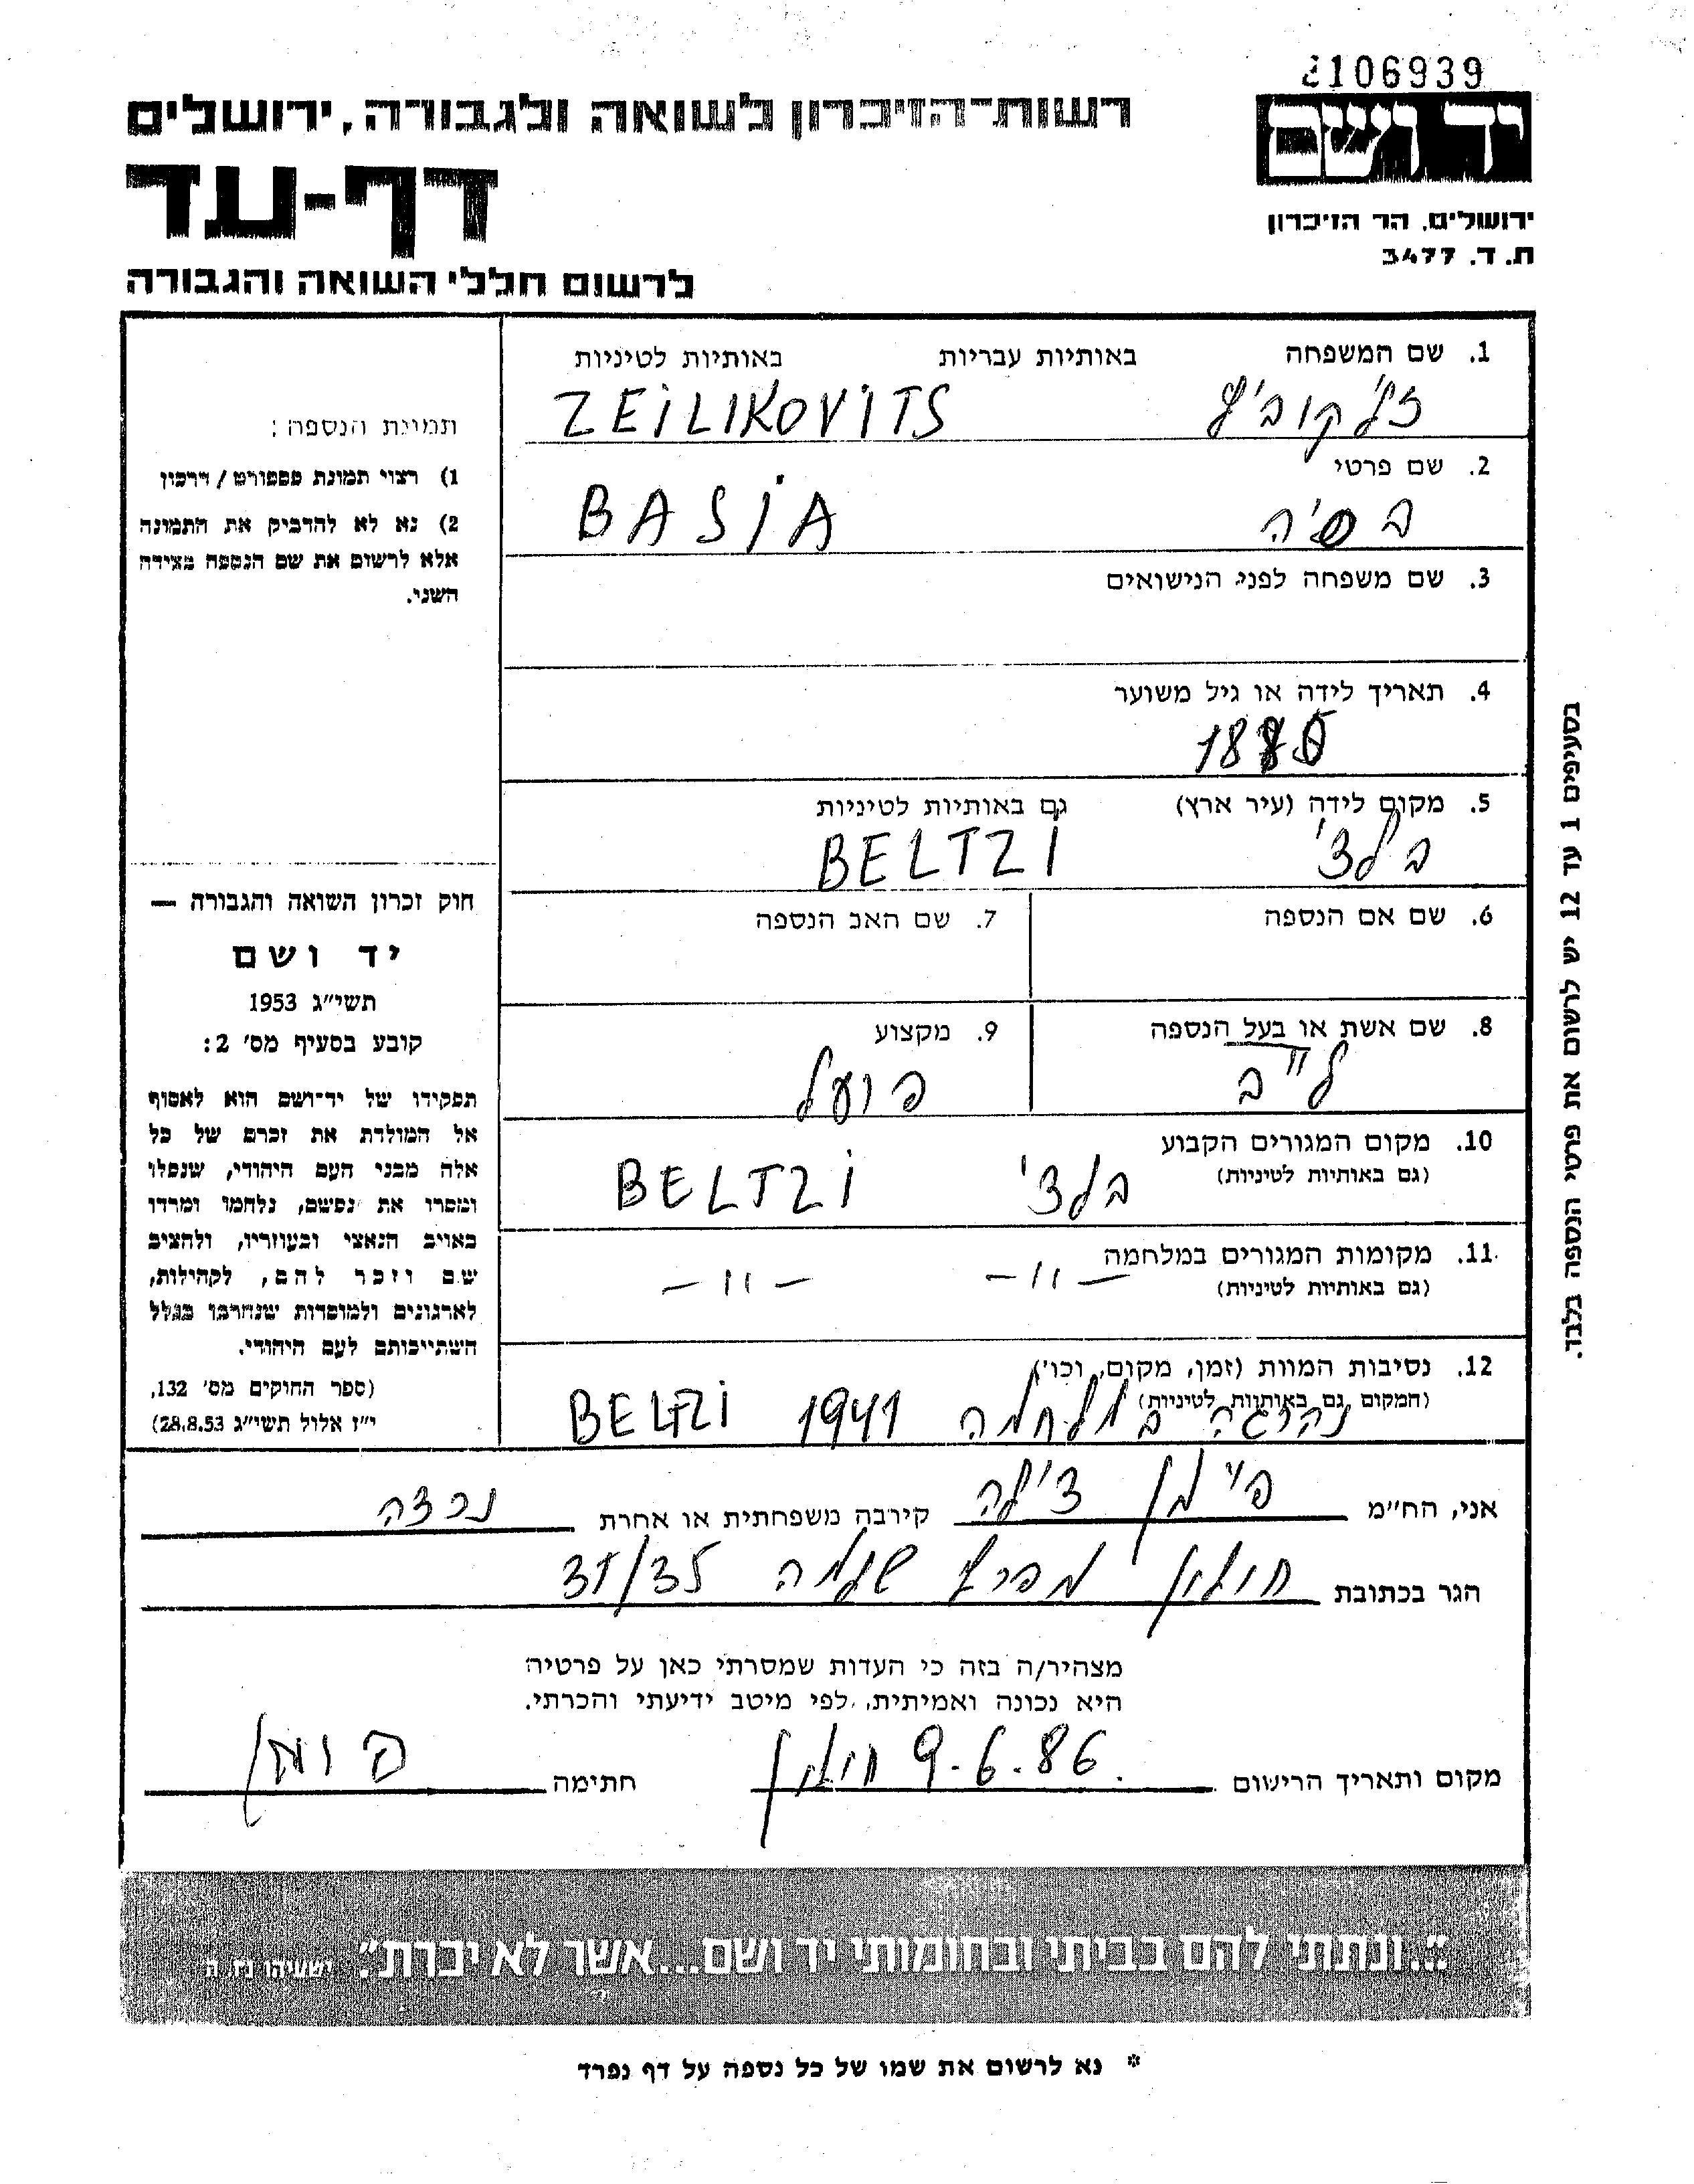 2106939
יד ושם
רשות-הזיכרון לשואה ולגבורה, ירושלים
דף-עד
ירושלים, הר הזיכרון
ת. ד. 3477
לרשום חללי השואה והגבורה
1. שם המשפחה באותיות עבריות באותיות לטיניות
זלקוביץ ZEILIKOVITS
2. שם פרטי
בסיה BASIA
3. שם משפחה לפני הנישואים
4. תאריך לידה או גיל משוער
5. מקום לידה (עיר ארץ) גם באותיות לטיניות
בלצי BELTZI
6. שם אם הנספה 7. שם האב הנספה
8. שם אשת או בעל הנספה 9. מקצוע
ל"ב פועל
10. מקום המגורים הקבוע
(גם באותיות לטיניות)
בלצי BELTZI
11. מקומות המגורים במלחמה
(גם באותיות לטיניות)
— " — — " —
12. נסיבות המוות (זמן, מקום, וכו')
(המקום גם באותיות לטיניות)
נהרגה במלחמה 1941 BELTZI
תמונת הנספה:
1) רצוי תמונת פספורט / דרכון
2) נא לא להדביק את התמונה
אלא לרשום את שם הנספה בצידה
השני.
חוק זכרון השואה והגבורה —
יד ושם
תשי"ג 1953
קובע בסעיף מס' 2:
תפקידו של יד-ושם הוא לאסוף
אל המולדת את זכרם של כל
אלה מבני העם היהודי, שנפלו
ומסרו את נפשם, נלחמו ומרדו
באויב הנאצי ובעוזריו, ולהציב
שם וזכר להם, לקהילות,
לארגונים ולמוסדות שנחרבו בגלל
השתייכותם לעם היהודי.
(ספר החוקים מס' 132,
י"ז אלול תשי"ג 28.8.53)
בסעיפים 1 עד 12 יש לרשום את פרטי הנספה בלבד.
אני, הח"מ פוימן צילה קירבה משפחתית או אחרת נכדה
הגר בכתובת חולון מפרץ שלמה 31/35
מצהיר/ה בזה כי העדות שמסרתי כאן על פרטיה
היא נכונה ואמיתית, לפי מיטב ידיעתי והכרתי.
מקום ותאריך הרישום 9.6.86 חולון חתימה
"...ונתתי להם בביתי ובחומותי יד ושם...אשר לא יכרת". ישעיהו נו, ה
* נא לרשום את שמו של כל נספה על דף נפרד